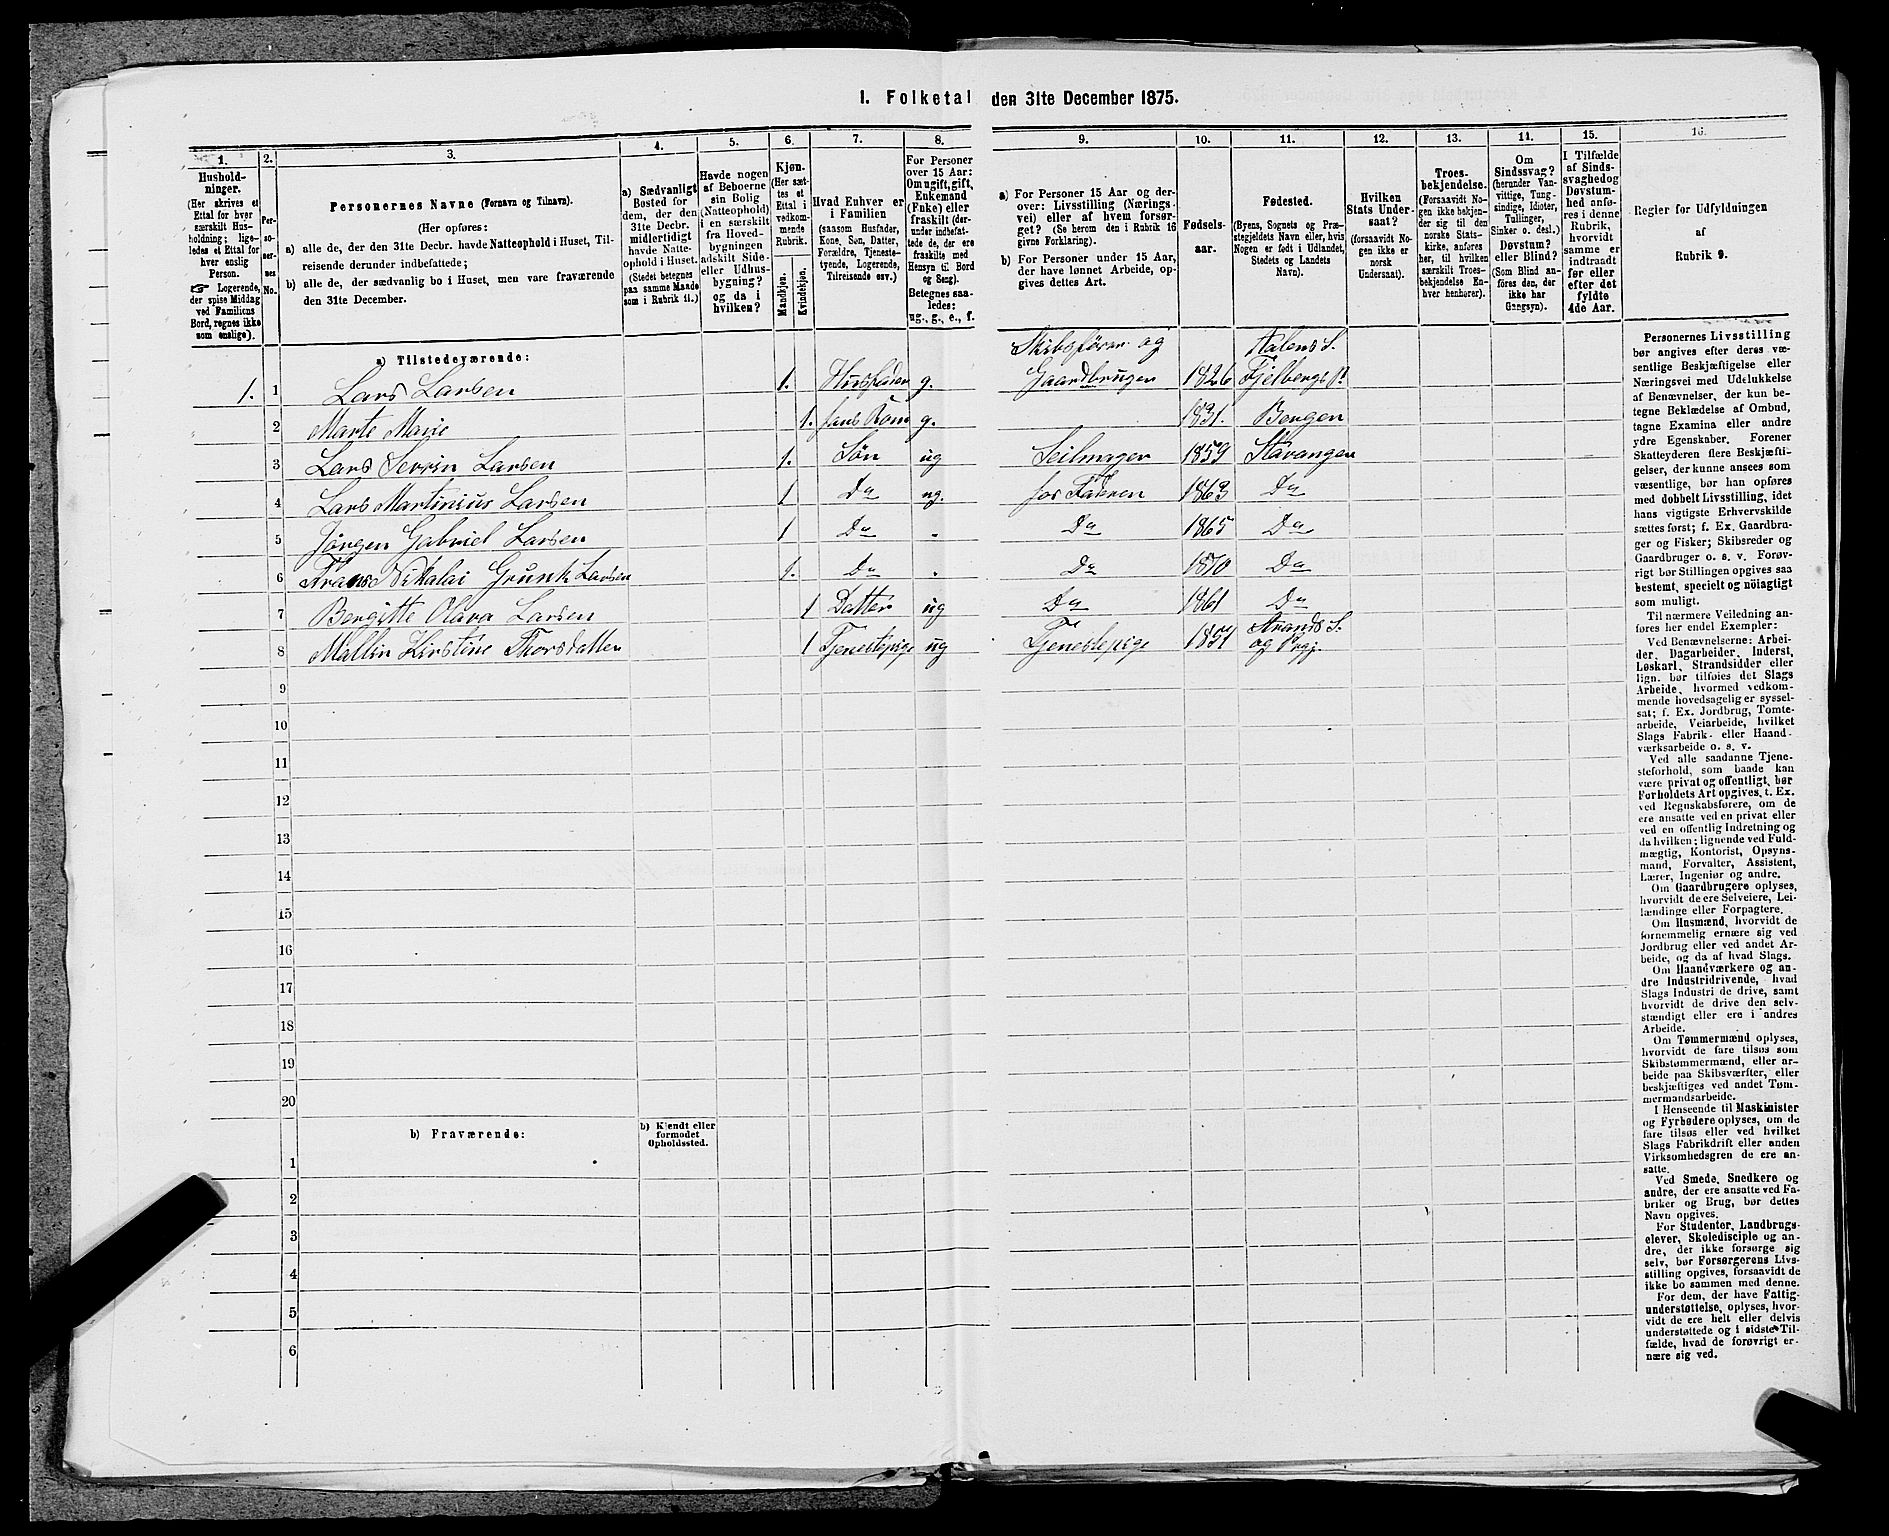 1. Folketal den 31te December 1875.
1. 2. 3. 4. 5. 6. 7. 8. 9. 10. 11. 12. 13. 14. 15. 16.
Hushold-
ninger.
(Her skrives et
Ettal for hver
særskilt Hus-
holdning; lige-
ledes et Ettal for
hver enslig
Person.
☞ Logerende,
der spise Middag
ved Familiens
Bord, regnes ikke
som enslige).
Per-
so-
ner-
nes
No.
Personernes Navne (Fornavn og Tilnavn).
(Her opføres:
a) alle de, der den 31te Decbr. havde Natteophold i Huset, Til-
reisende derunder indbefattede;
b) alle de, der sædvanlig bo i Huset, men vare fraværende
den 31te December.
a) Sædvanligt
Bosted for
dem, der den
31te Decbr.
midlertidigt
havde Natte-
ophold i Huset.
(Stedet betegnes
paa samme Maade
som i Rubrik 11.)
Havde nogen
af Beboerne
sin Bolig
(Natteophold)
i en særskilt
fra Hoved-
bygningen
adskilt Side-
eller Udhus-
bygning?
og da i
hvilken?
Kjøn.
(Her sæt-
tes et
Ettal i
vedkom-
mende
Rubrik.
Mandkjøn.
Kvindekjøn.
Hvad Enhver er
i Familien
(saasom Husfader,
Kone, Søn, Datter,
Forældre, Tjeneste-
tyende, Logerende,
Tilreisende osv.)
For Personer
over 15 Aar:
Om ugift, gift,
Enkemand
(Enke) eller
fraskilt (der-
under indbefat-
tede de, der ere
fraskilte med
Hensyn til Bord
og Seng).
Betegnes saa-
ledes:
ug., g., e., f.
a) For Personer 15 Aar og der-
over: Livsstilling (Nærings-
vei) eller af hvem forsør-
get? (Se herom den i Rubrik 16
givne Forklaring).
b) For Personer under 15 Aar,
der have lønnet Arbeide, op-
gives dettes Art.
Fødsels-
aar.
Fødested.
(Byens, Sognets og Præ-
stegjeldets Navn eller, hvis
Nogen er født i Udlandet,
Stedets og Landets
Navn).
Hvilken
Stats Under-
saat?
(forsaavidt No-
gen ikke er
norsk
Undersaat).
Troes-
bekjendelse.
(Forsaavidt No-
gen ikke bekjen-
der sig til den
norske Stats-
kirke, anføres
her, til hvilken
særskilt Troes-
bekjendelse En-
hver henhører).
Om
Sindssvag?
(herunder Van-
vittige, Tung-
sindige, Idioter,
Tullinger,
Sinker o. desl.)
Døvstum?
eller Blind?
(Som Blind an-
føres den, der
ikke har
Gangsyn).
I Tilfælde
af Sinds-
svaghed og
Døvstum-
hed anfø-
res i denne
Rubrik,
hvorvidt
samme er
indtraadt
før eller
efter det
fyldte
4de Aar.
Regler for Udfyldningen
af
Rubrik 9.
a) Tilstedeværende:
Skibsfører og Aalens S.
1. 1 Lars Larsen 1. Husfader g. Gaardbruger 1826 Fjelbergs P.
2 Marte Marie 1. hans Kone g. 1831. Bergen
3 Lars Severin Larsen 1. Søn ug Seilmager 1859 Stavanger
4 Lars Martinius Larsen 1 Do ug. hos Faderen 1863 Do
5 Jørgen Gabriel Larsen 1 Do " Do 1865 Do
6 Frans Nikolai Grunk Larsen 1. Do " Do 1870 Do
7 Bergitte Olava Larsen 1 Datter ug Do 1861 Do
8 Mallin Kirstine Thorsdatter 1 Tjenestepige ug Tjenestepige 1851 Strands S.
og Prgj.
9
10
11
12
13
14
15
16
17
18
19
20
b) Fraværende:
b) Kjendt eller
formodet
Opholdssted.
1
2
3
4
5
6
Personernes Livsstilling
bør angives efter deres væ-
sentlige Beskjæftigelse eller
Næringsvei med Udelukkelse
af Benævnelser, der kun be-
tegne Beklædelse af Ombud,
tagne Examina eller andre
ydre Egenskaber. Forener
Skatteyderen flere Beskjæfti-
gelser, der kunne ansees som
væsentlige, bør han opføres
med dobbelt Livsstilling, idet
hans vigtigste Erhvervskilde
sættes først; f. Ex. Gaardbru-
ger og Fisker; Skibsreder og
Gaardbruger o. s. v. Forøv-
rigt bør Stillingen opgives saa
bestemt, specielt og nöiagtigt
som muligt.
Til nærmere Veiledning an-
føres her endel Exempler:
Ved Benævnelserne: Arbei-
der, Dagarbeider, Inderst,
Løskarl, Strandsidder eller
lign. bør tilføies det Slags
Arbeide, hvormed vedkom-
mende hovedsagelig er syssel-
sat; f. Ex. Jordbrug, Tomte-
arbeide, Veiarbeide, hvilket
Slags Fabrik- eller Haand-
værksarbeide o. s. v.
Ved alle saadanne Tjene-
steforhold, som baade kan
være privat og offentligt, bør
Forholdets Art opgives, t. Ex.
ved Regnskabsførere, om de
ere ansatte ved en privat eller
ved en offentlig Indretning og
da hvilken; lignende ved Fuld-
mægtig, Kontorist, Opsyns-
mand, Forvalter, Assistent,
Lærer, Ingeniør og andre.
Om Gaardbrugere oplyses,
hvorvidt de ere Selveiere, Lei-
lændinge eller Forpagtere.
Om Husmænd, hvorvidt de
fornemmelig ernære sig ved
Jordbrug eller ved andet Ar-
beide, og da af hvad Slags.
Om Haandværkere og an-
dre Industridrivende, hvad
Slags Industri de drive, samt
hvorvidt de drive den selv-
stændigt eller ere i andres
Arbeide.
Om Tømmermænd oplyses,
hvorvidt de fare tilsøs som
Skibstømmermænd, eller ar-
beide paa Skibsværfter, eller
beskjæftiges ved andet Tøm-
mermandsarbeide.
I Henseende til Maskinister
og Fyrbødere oplyses, om de
fare tilsøs eller ved hvilket
Slags Fabrikdrift eller anden
Virksomhedsgren de ere an-
satte.
Ved Smede, Snedkere og
andre, der ere ansatte ved Fa-
briker og Brug, bør dettes
Navn opgives.
For Studenter, Landbrugs-
elever, Skoledisciple og an-
dre, der ikke forsørge sig
selv, bør Forsørgerens Livs-
stilling opgives, forsaavidt de
ikke bo sammen med denne.
For dem, der have Fattig-
understøttelse, oplyses, hvor-
vidt de ere helt eller delvis
understøttede og i sidste Til-
fælde, hvad de forøvrigt er-
nære sig ved.